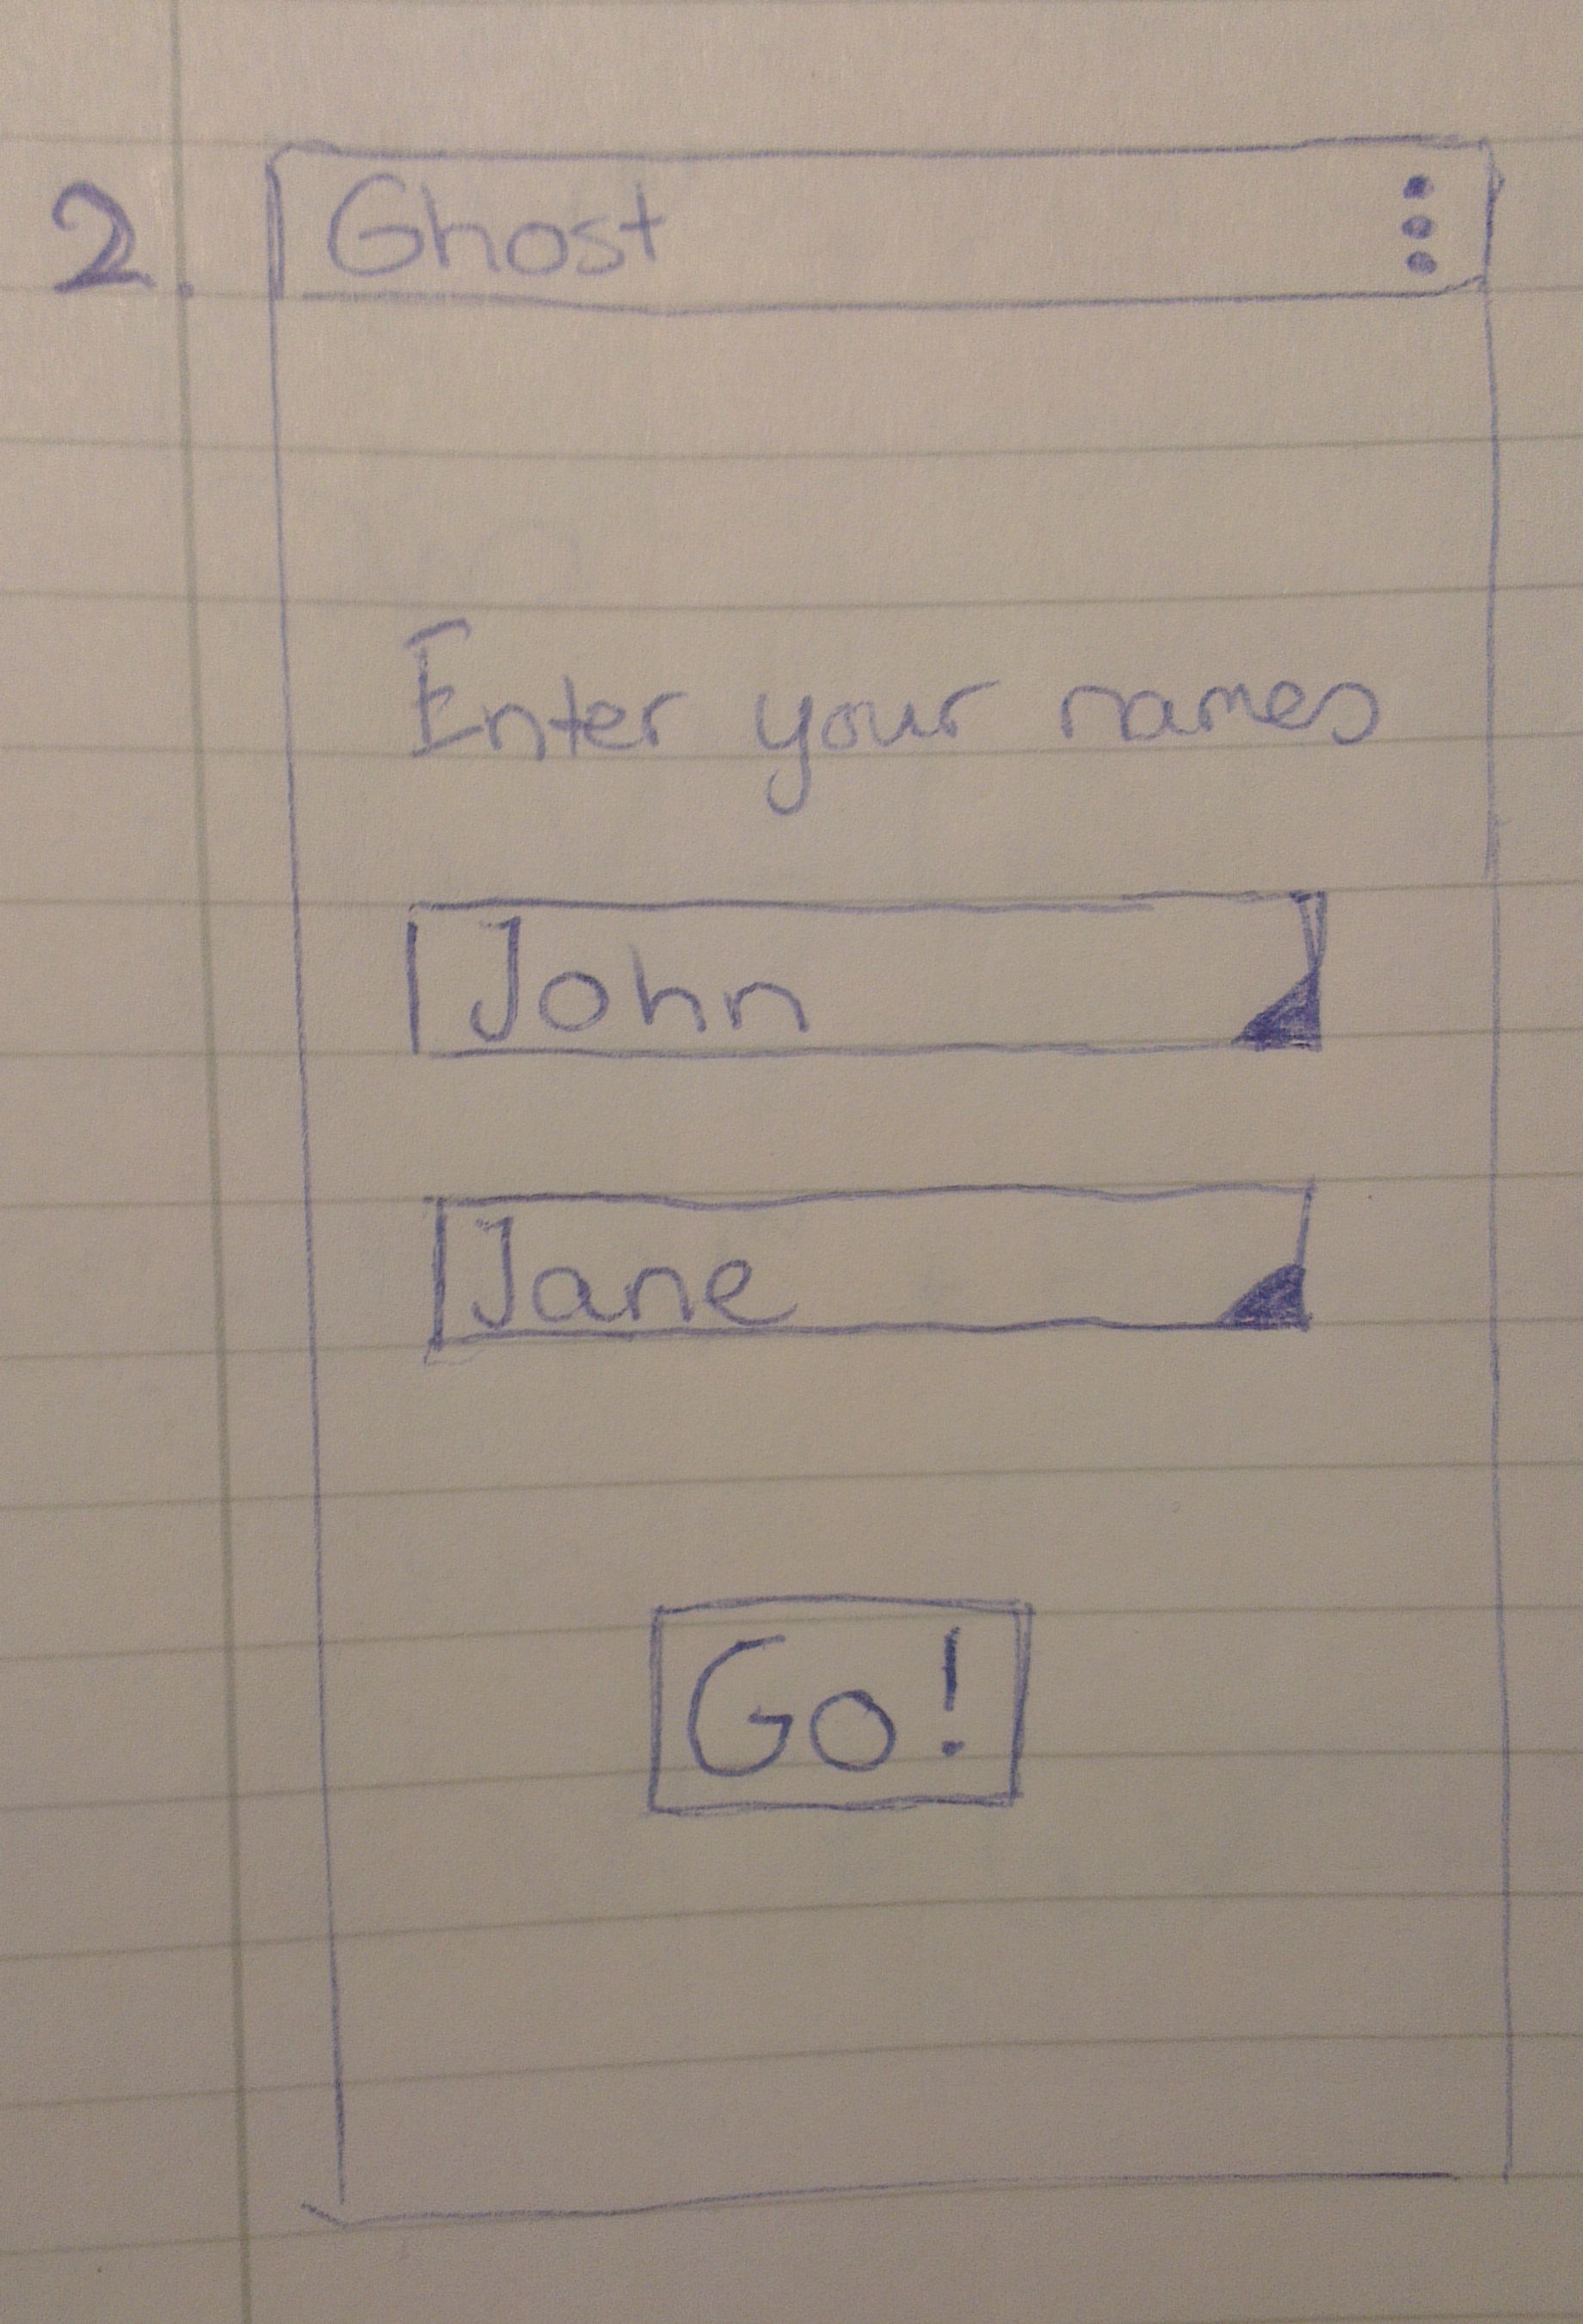 2. Ghost
Enter your names
John
Jane
Go!